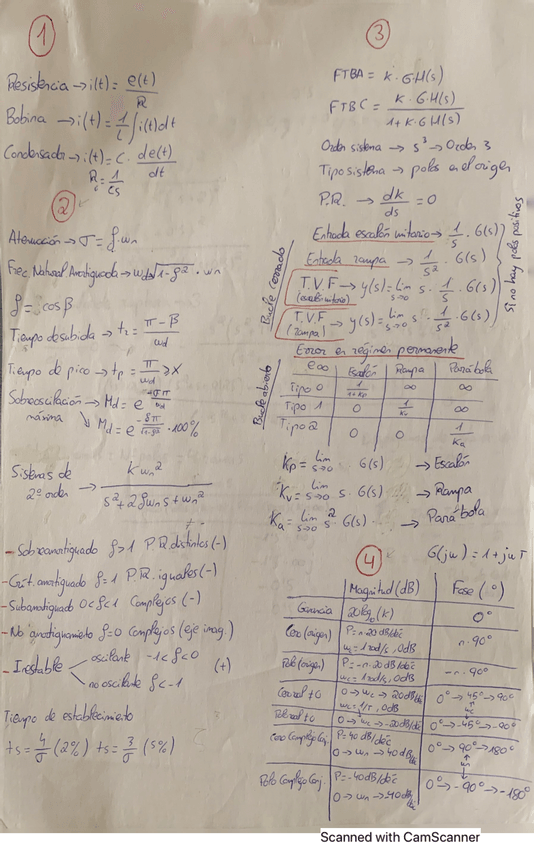 1
Resistencia → i(t) = e(t)/R
Bobina → i(t) = 1/L ∫ i(t)dt
Condensador → i(t) = C · de(t)/dt
R = 1/Cs
2
Atenuación → σ = ξ·wn
Frec Natural Amortiguada → wd = √(1-ξ²) · wn
ξ = cosβ
Tiempo de subida → tr = (π-β)/wd
Tiempo de pico → tp = π/wd
Sobreoscilación máxima → Md = e^(-σπ/wd)
Md = e^(-ξπ/√(1-ξ²)) · 100%
Sistemas de 2º orden → K wn² / (s² + 2ξwn s + wn²)
- Sobreamortiguado ξ>1 P.R. distintos (-)
- Crít. amortiguado ξ=1 P.R. iguales (-)
- Subamortiguado 0<ξ<1 Complejos (-)
- No amortiguamiento ξ=0 Complejos (eje imag.)
- Inestable oscilante -1<ξ<0 (+)
no oscilante ξ<-1
Tiempo de establecimiento
ts = 4/σ (2%) ts = 3/σ (5%)
3
FTBA = K·G·H(s)
FTBC = K·G·H(s) / (1+K·G·H(s))
Orden sistema → s³ → Orden 3
Tipo sistema → polos en el origen
P.R. → dk/ds = 0
Entrada escalón unitario → 1/s · G(s)
Entrada rampa → 1/s² · G(s)
T.V.F (escalón unitario) → y(s) = lim s→0 s · 1/s · G(s)
T.V.F (rampa) → y(s) = lim s→0 s · 1/s² · G(s)
Bucle cerrado
Si no hay polos positivos
Error en régimen permanente
Bucle abierto
e∞ Escalón Rampa Parábola
Tipo 0 1/(1+Kp) ∞ ∞
Tipo 1 0 1/Kv ∞
Tipo 2 0 0 1/Ka
Kp = lim s→0 G(s) → Escalón
Kv = lim s→0 s·G(s) → Rampa
Ka = lim s→0 s²·G(s) → Parábola
4
G(jw) = 1+jwT
Magnitud (dB) Fase (°)
Ganancia 20log(K) 0°
Cero (origen) P=n·20dB/déc n·90°
wc = 1 rad/s, 0dB
Polo (origen) P=-n·20dB/déc -n·90°
wc = 1 rad/s, 0dB
Cero real ≠0 0→wc→20dB/déc 0°→45°→90°
wc = 1/T, 0dB wc
Polo real ≠0 0→wc→-20dB/déc 0°→-45°→-90°
Cero Complejo Conj. P=40dB/déc 0°→90°→180°
0→wn→40dB/déc wn
Polo Complejo Conj. P=-40dB/déc 0°→-90°→-180°
0→wn→-40dB/déc
Scanned with CamScanner